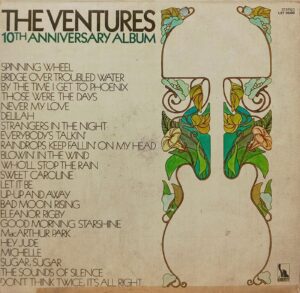 THE VENTURES
10TH ANNIVERSARY ALBUM
STEREO
SPINNING WHEEL
BRIDGE OVER TROUBLED WATER
BY THE TIME I GET TO PHOENIX
THOSE WERE THE DAYS
NEVER MY LOVE
DELILAH
STRANGERS IN THE NIGHT
EVERYBODY'S TALKIN'
RAINDROPS KEEP FALLIN' ON MY HEAD
BLOWIN' IN THE WIND
WHO'LL STOP THE RAIN
SWEET CAROLINE
LET IT BE
UP-UP AND AWAY
BAD MOON RISING
ELEANOR RIGBY
GOOD MORNING STARSHINE
MacARTHUR PARK
HEY JUDE
MICHELLE
SUGAR, SUGAR
THE SOUNDS OF SILENCE
DON'T THINK TWICE, IT'S ALL RIGHT